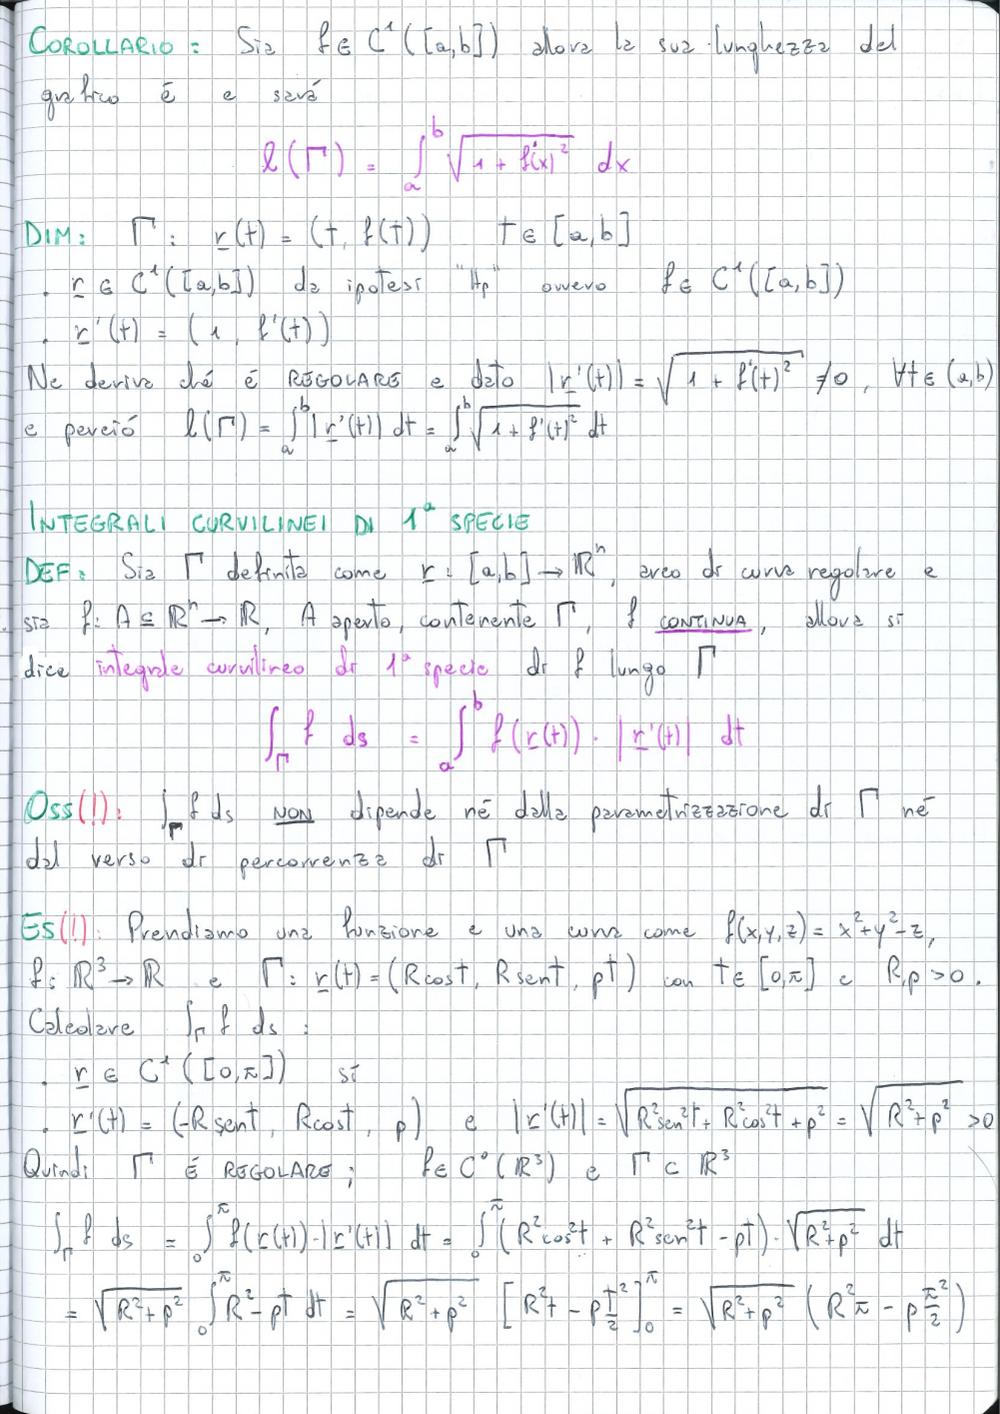 COROLLARIO: Sia f ∈ C¹([a,b]) allora la sua lunghezza del
grafico è e sará
l(Γ) = ∫ₐᵇ √(1 + f'(x)²) dx
DIM: Γ: r(t) = (t, f(t)) t ∈ [a,b]
. r ∈ C¹([a,b]) da ipotesi "Hp" ovvero f ∈ C¹([a,b])
. r'(t) = (1, f'(t))
Ne deriva ché é REGOLARE e dato |r'(t)| = √(1 + f'(t)²) ≠0, ∀t ∈ (a,b)
e perció l(Γ) = ∫ₐᵇ |r'(t)| dt = ∫ₐᵇ √(1 + f'(t)²) dt
INTEGRALI CURVILINEI DI 1ª SPECIE
DEF: Sia Γ definita come r: [a,b] → ℝⁿ, arco di curva regolare e
sia f: A ⊆ ℝⁿ → ℝ, A aperto, contenente Γ, f CONTINUA, allora si
dice integrale curvilineo di 1ª specie di f lungo Γ
∫_Γ f ds = ∫ₐᵇ f(r(t)) · |r'(t)| dt
Oss(!): ∫_Γ f ds NON dipende né dalla parametrizzazione di Γ né
dal verso di percorrenza di Γ
Es(!): Prendiamo una funzione e una curva come f(x,y,z) = x²+y²-z,
f: ℝ³ → ℝ e Γ: r(t) = (Rcost, Rsent, pt) con t ∈ [0,π] e R,p >0.
Calcolare ∫_Γ f ds :
. r ∈ C¹([0,π]) sí
. r'(t) = (-Rsent, Rcost, p) e |r'(t)| = √(R²sen²t + R²cos²t + p²) = √(R²+p²) >0
Quindi Γ É REGOLARE; f ∈ C⁰(ℝ³) e Γ ⊂ ℝ³
∫_Γ f ds = ∫₀^π f(r(t))·|r'(t)| dt = ∫₀^π (R²cos²t + R²sen²t - pt)·√(R²+p²) dt
= √(R²+p²) ∫₀^π R² - pt dt = √(R²+p²) [R²t - p t²/2]₀^π = √(R²+p²) (R²π - p π²/2)